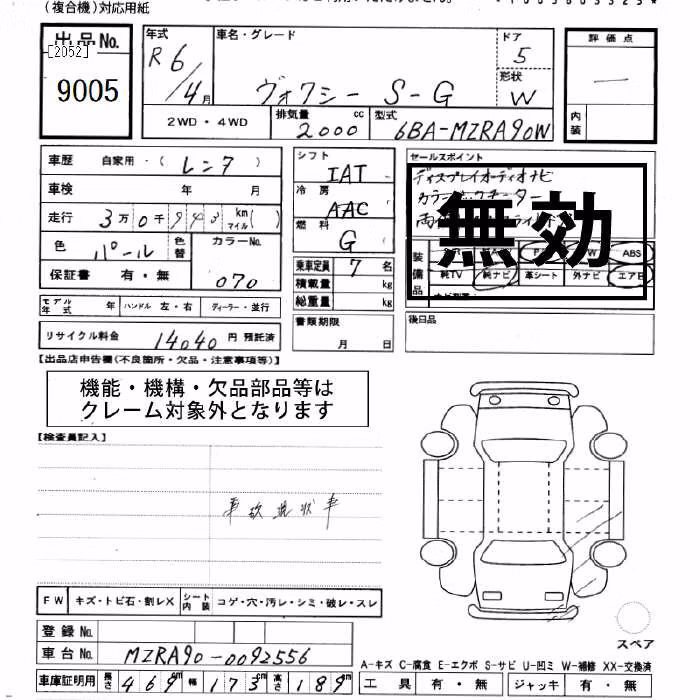 (複合機)対応用紙
出品No.
[2052]
9005
年式
R6/4月
車名・グレード
ヴォクシー S-G
ドア
5
形状
W
2WD・4WD
排気量
2000 cc
型式
6BA-MZRA90W
評価点
内装
車歴 自家用・(レンタ)
車検 年 月
走行 3万0千 km マイル( )
色 パール
色替
カラーNo.
070
保証書 有・無
シフト
IAT
冷房
AAC
燃料
G
乗車定員 7 名
積載量 kg
総重量 kg
セールスポイント
ディスプレイオーディオナビ
無効
装備品
ABS
純TV 純ナビ 革シート 外ナビ エアB
モデル年式 年 ハンドル 左・右 ディーラー・並行
リサイクル料金 14040 円 預託済
書類期限
月 日
後日品
【出品店申告欄(不良箇所・欠品・注意事項等)】
機能・機構・欠品部品等は
クレーム対象外となります
【検査員記入】
事故現状車
FW キズ・トビ石・割レX シート内装 コゲ・穴・汚レ・シミ・破レ・スレ
登録No.
車台No. MZRA90-0092556
車庫証明用 長さ 469cm 幅 173cm 高さ 189cm
スペア
A-キズ C-腐食 E-エクボ S-サビ U-凹ミ W-補修 XX-交換済
工具 有・無 ジャッキ 有・無